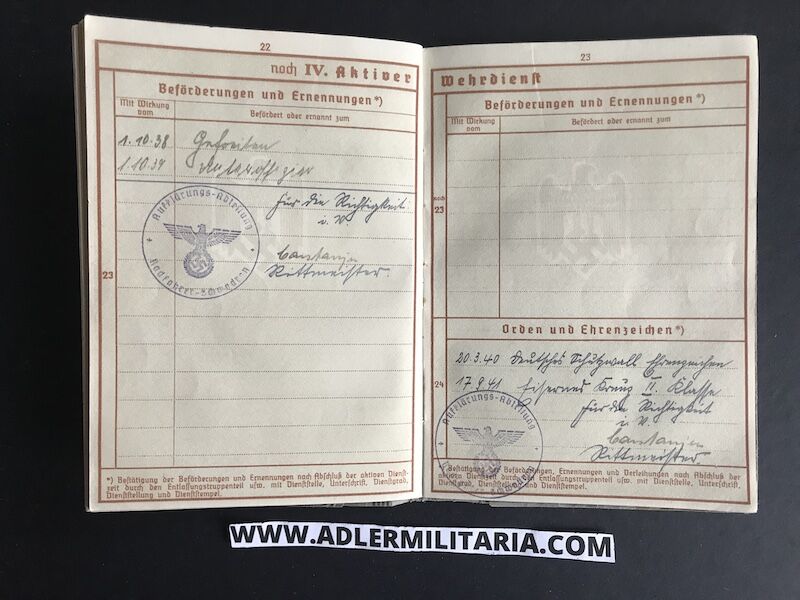 22
noch IV. Aktiver
Beförderungen und Ernennungen*)
Mit Wirkung vom
Befördert oder ernannt zum
1.10.38 Gefreiten
1.10.39 Unteroffizier
Für die Richtigkeit
i. V.
Rittmeister
Aufklärungs-Abteilung
Radfahrer-Schwadron
23
*) Bestätigung der Beförderungen und Ernennungen nach Abschluß der aktiven Dienst-
zeit durch den Entlassungstruppenteil usw. mit Dienststelle, Unterschrift, Dienstgrad,
Dienststellung und Dienststempel.
23
Wehrdienst
Beförderungen und Ernennungen*)
Mit Wirkung vom
Befördert oder ernannt zum
noch
23
Orden und Ehrenzeichen*)
20.3.40 Deutsches Schutzwall Ehrenzeichen
17.9.41 Eisernes Kreuz II. Klasse
Für die Richtigkeit
i. V.
Rittmeister
24
Aufklärungs-Abteilung
Bestätigung der Beförderungen, Ernennungen und Verleihungen nach Abschluß der
aktiven Dienstzeit durch den Entlassungstruppenteil usw. mit Dienststelle, Unterschrift,
Dienstgrad, Dienststellung und Dienststempel.
WWW.ADLERMILITARIA.COM